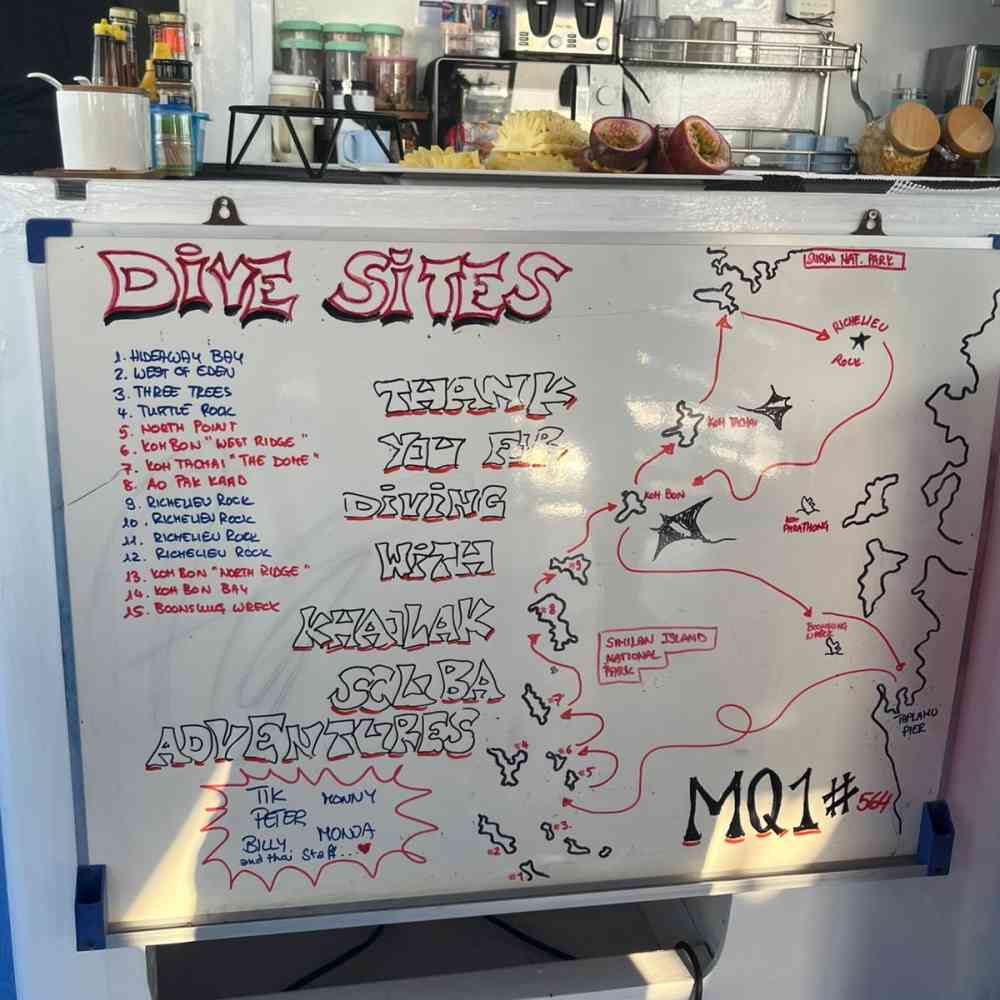 DIVE SITES
1. HIDEAWAY BAY
2. WEST OF EDEN
3. THREE TREES
4. TURTLE ROCK
5. NORTH POINT
6. KOH BON "WEST RIDGE"
7. KOH TACHAI "THE DOME"
8. AO PAK KAAD
9. RICHELIEU ROCK
10. RICHELIEU ROCK
11. RICHELIEU ROCK
12. RICHELIEU ROCK
13. KOH BON "NORTH RIDGE"
14. KOH BON BAY
15. BOONSUNG WRECK
THANK
YOU FOR
DIVING
WITH
KHAOLAK
SCUBA
ADVENTURES
TIK MONNY
PETER
BILLY MONDA
and thai Staff...
SURIN NAT. PARK
RICHELIEU
ROCK
KOH TACHAI
KOH BON
KOH
PHRATHONG
#9
#8
SIMILAN ISLAND
NATIONAL
PARK
BOONSUNG
WRECK
#7
TAPLAMU
PIER
#4
#6
#5
#3
#2
#1
MQ1#564